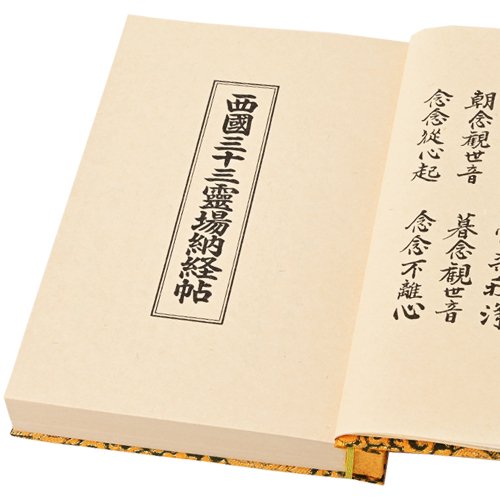 西國三十三靈場納経帖
朝念觀世音 暮念觀世音
念念從心起 念念不離心